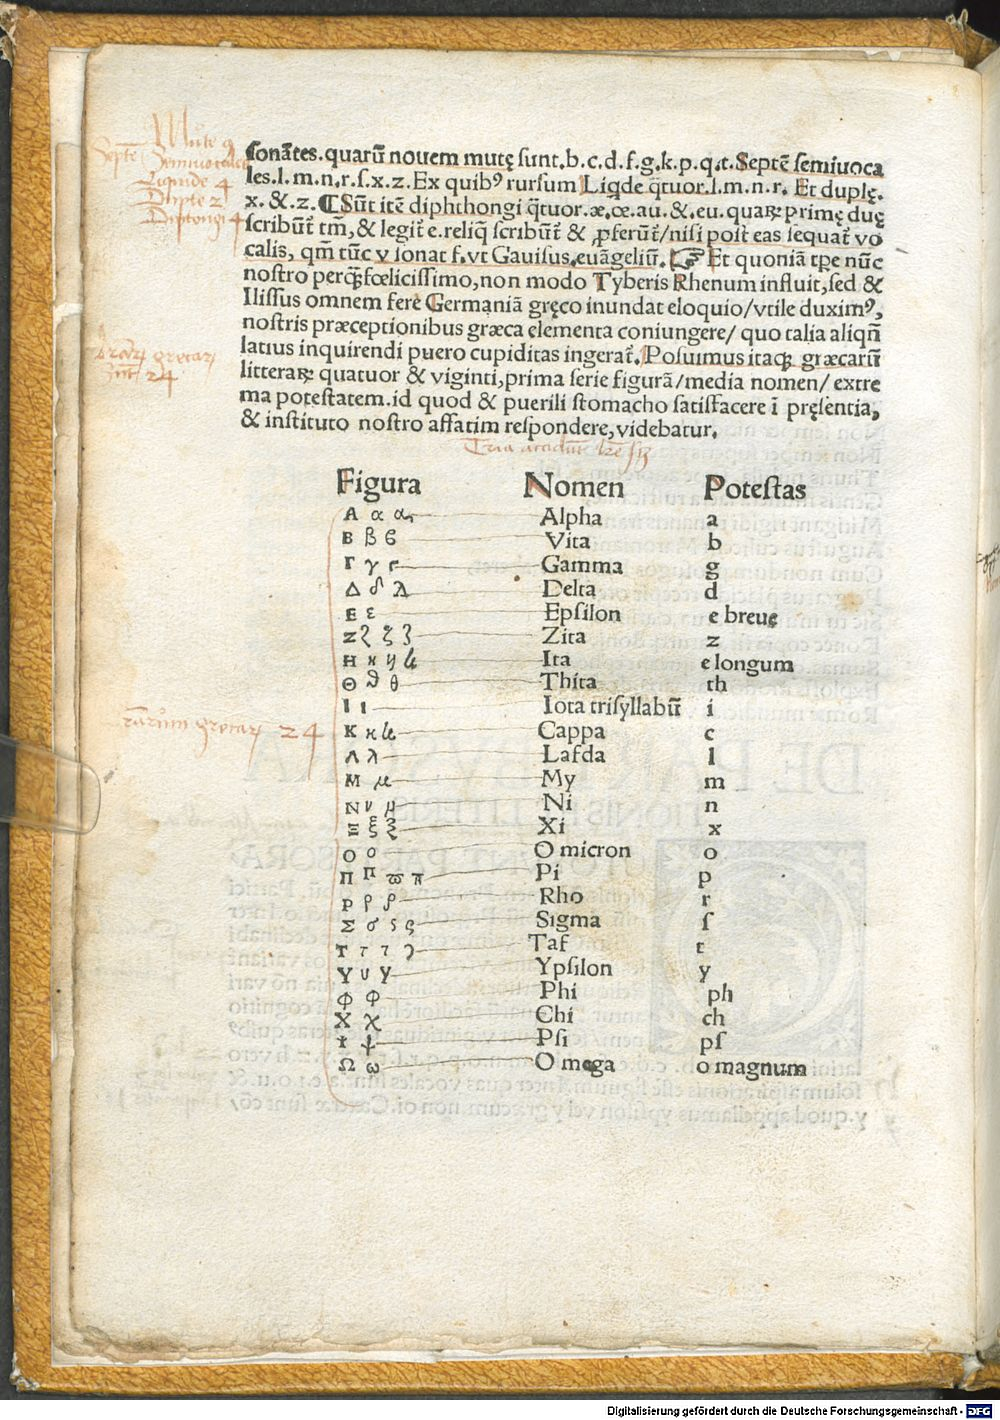 sonātes.quarū nouem mutę sunt.b.c.d.f.g.k.p.q.t.Septē semiuoca
les.l.m.n.r.s.x.z. Ex quibꝰ rursum Liq̄de q̄tuor.l.m.n.r. Et duplę.
x. &.z. ¶ Sūt itē diphthongi q̄tuor.æ.œ.au.&.eu. quaꝝ primę duę
scribūt tm̄, & legit e.reliq̄ scribūt & ꝓferūt/nisi post eas sequat vo
calis, qm̄ tūc v sonat f.vt Gauisus.euāgeliū. ☞ Et quoniā tpe nūc
nostro perq̄fœlicissimo,non modo Tyberis Rhenum influit,sed &
Ilissus omnem ferè Germaniā gręco inundat eloquio/vtile duximꝰ,
nostris præceptionibus græca elementa coniungere/ quo talia aliqn̄
latius inquirendi puero cupiditas ingerat. Posuimus itaqꝫ græcarū
litteraꝝ quatuor & viginti,prima serie figurā/media nomen/ extre
ma potestatem.id quod & puerili stomacho satisfacere ī pręsentia,
& instituto nostro affatim respondere,videbatur.
Figura Nomen Potestas
Α α α Alpha a
Β β ϐ Vita b
Γ γ Gamma g
Δ δ λ Delta d
Ε ε Epsilon e breuę
Ζ ζ ζ Zita z
Η η Ita e longum
Θ ϑ θ Thita th
Ι ι Iota trisyllabū i
Κ κ Cappa c
Λ λ Lafda l
Μ μ My m
Ν ν Ni n
Ξ ξ ξ Xi x
Ο ο O micron o
Π π ϖ π Pi p
Ρ ρ ρ Rho r
Σ σ ς ς Sigma ſ
Τ τ τ Taf t
Υ υ Ypsilon y
Φ φ Phi ph
Χ χ Chi ch
Ψ ψ Psi ps
Ω ω O mega o magnum
Digitalisierung gefördert durch die Deutsche Forschungsgemeinschaft - DFG